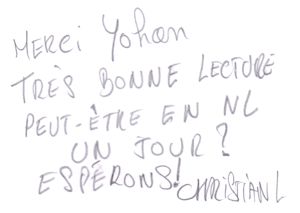 Merci Yohan
TRÈS BONNE LECTURE
PEUT-ÊTRE EN NL
UN JOUR ?
ESPÉRONS!
CHRISTIAN L